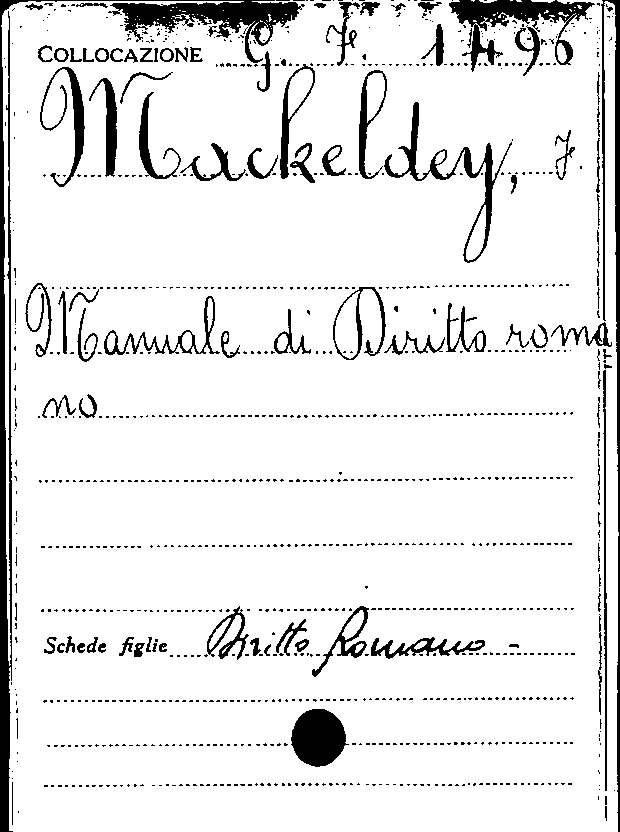 COLLOCAZIONE G. F. 1496
Mackeldey, F.
Manuale di Diritto roma
no
Schede figlie Diritto Romano -